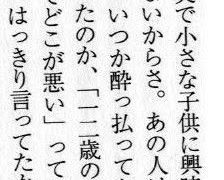 で小さな子供に興
いからさ。あの人は
いつか酔っ払って
たのか、「一二歳の
でどこが悪い」って
はっきり言ってたか